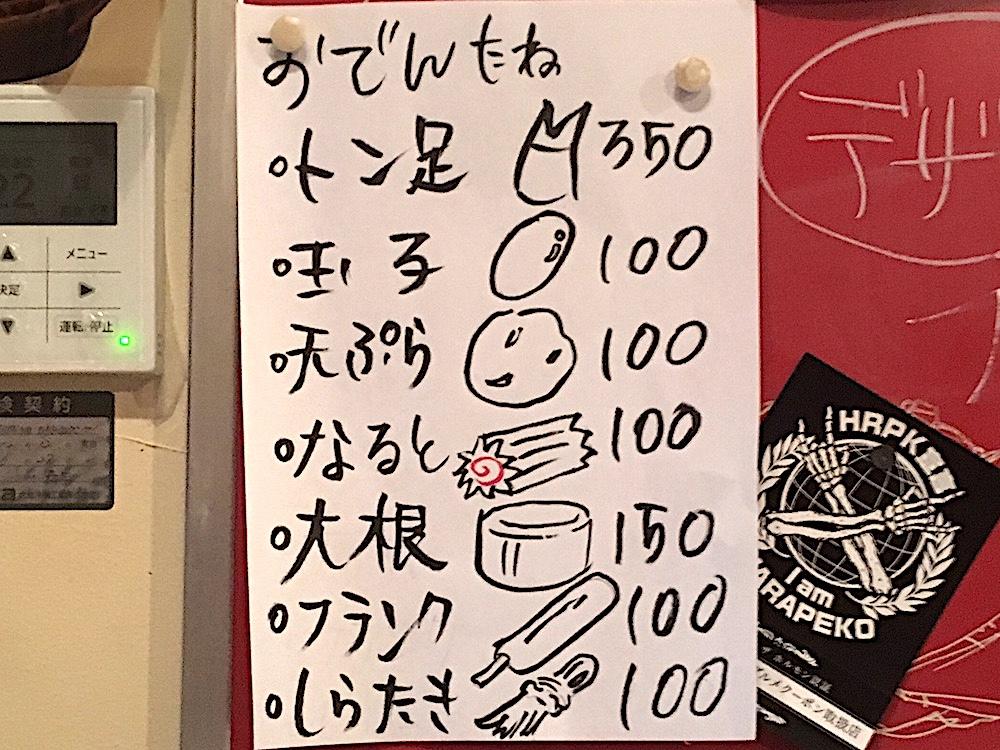 おでんたね
トン足 350
玉子 100
天ぷら 100
なると 100
大根 150
フランク 100
しらたき 100
デザ
メニュー
決定
運転/停止
険契約
HRPK
I am
ARAPEKO
ザ ホルモン認証
グルメクーポン取扱店